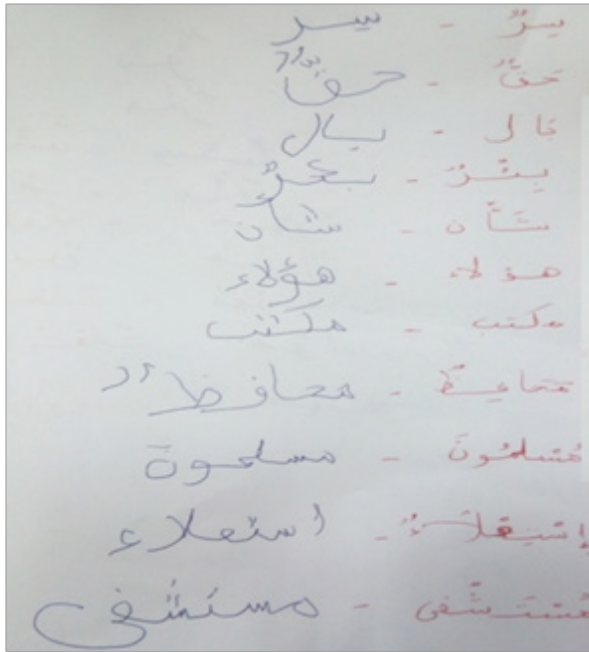 سِرٌّ - سير
حَقٌّ - حقٌّ
قال - بال
بِئْرٌ - بحرٌ
شَأْن - شأن
هؤلاء - هؤلاء
مكتب - مكتب
مَحافِظٌ - محافيظ
مُسْلِمُونَ - مسلمونَ
إسْتِعْلاءٌ - استعلاء
مُسْتَشْفى - مستشفى